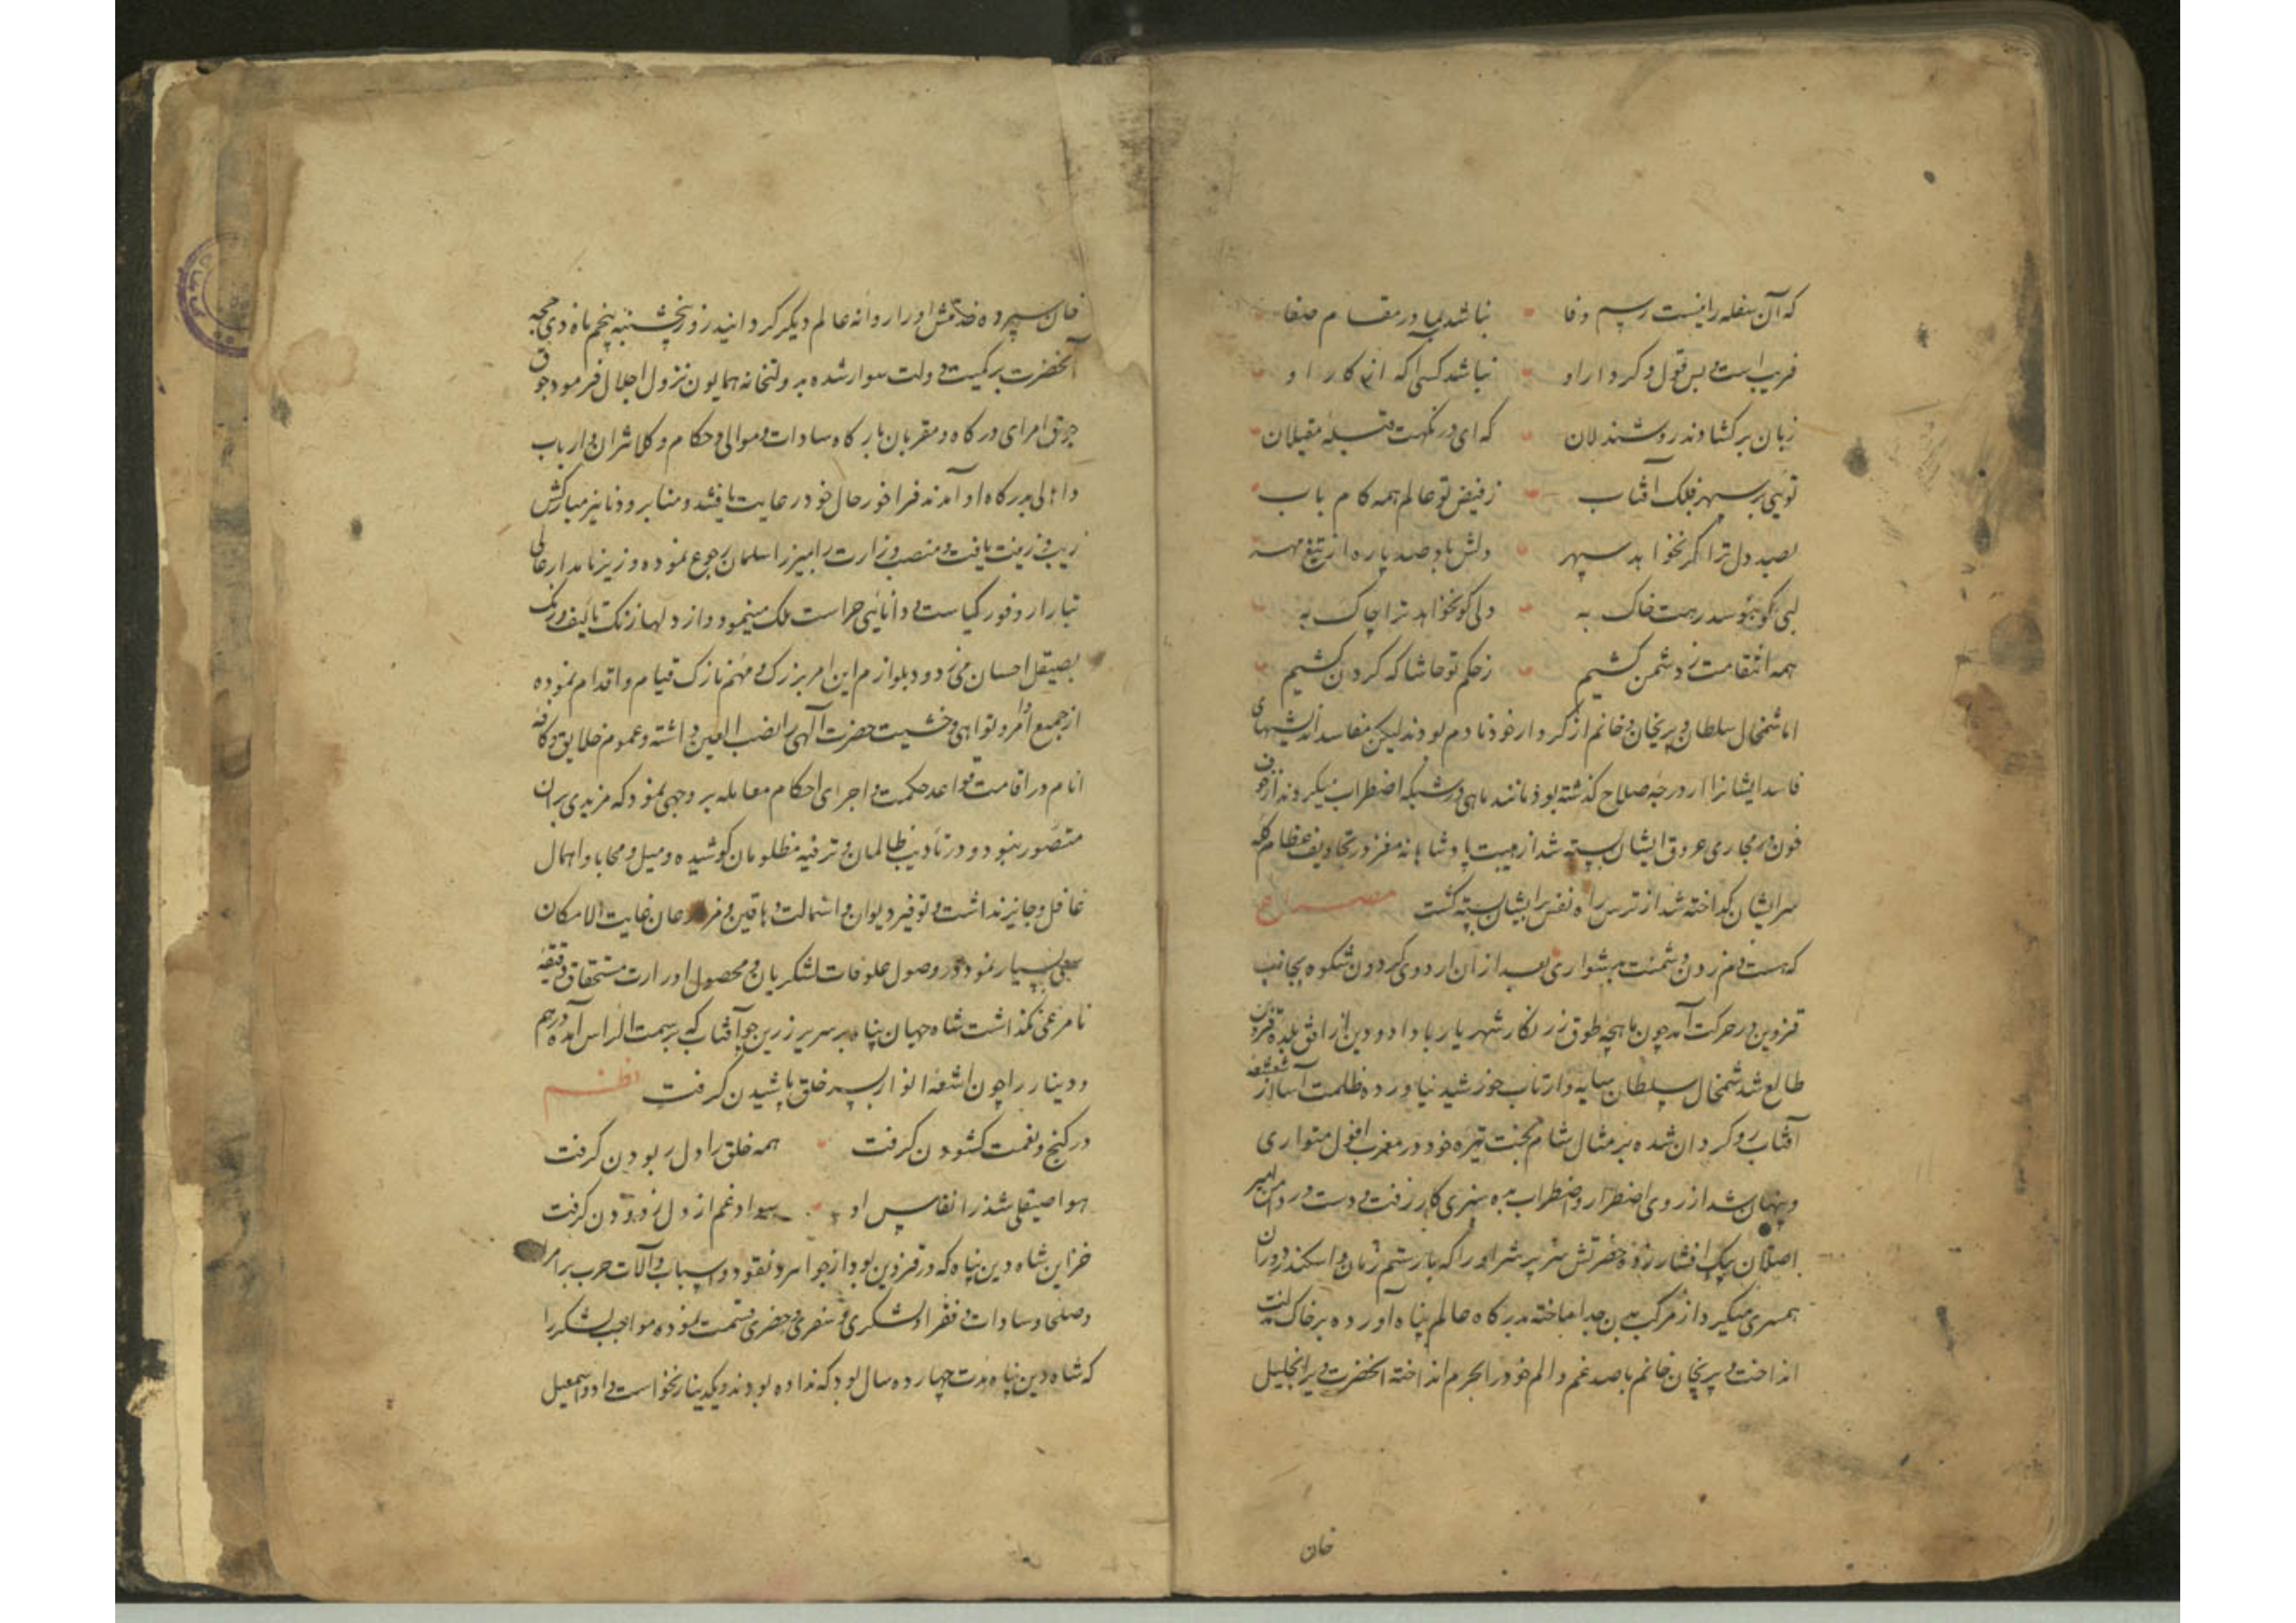 که آن سفله را نیست رسم وفا نباشد بما در مقام صفا
فریب است بس قول و کردار او نباشد کسی را که انکار او
زبان برکشادند روشندلان که ای درگهت قبله مقبلان
تویی بر سپهر فلک آفتاب ز فیض تو عالم همه کام یاب
بصد دل ترا گر نخواهد سپهر دلش باد صد پاره از تیغ مهر
لبی کو نبوسد رهت خاک به دلی کو نخواهد ترا چاک به
همه انتقامت ز دشمن کشیم ز حکم تو حاشا که گردن کشیم
اما شمخال سلطان و پریخان خانم از کردار خود نادم بودند لیکن مفاسد اندیشهای
فاسد ایشانرا از درجه صلاح گذشته بود مانند ماهی در شبکه اضطراب میکردند از خوف
خون در مجاری عروق ایشان بسته شد از هیبت پادشاهانه مغز در تجاویف عظام کله
سر ایشان گداخته شد از ترس راه نفس بر ایشان بسته گشت مصراع
که هست دم زدن دشمنت بدشواری بعد از آن اردوی گردون شکوه بجانب
قزوین در حرکت آمد چون ماهچه طوق زرنگار شهریار با داد و دین از افق بلده قزوین
طالع شد شمخال سلطان سایه وار تاب خورشید نیاورده ظلمت آسا از شعشعه
آفتاب رو گردان شده بر مثال شام بخت تیره خود در مغرب افول متواری
و پنهان شد از روی اضطرار و اضطراب به بیری کار رفت و دست در دامن امیر
اصلان بیک افشار زده حضرتش شریر شراره را که با رستم زمان و اسکندر دوران
همسری میکرد از مرکب بدن جدا ساخته بدرگاه عالم پناه آورده بر خاک مذلت
انداخت و پریخان خانم با صد غم و الم خود را بحرم انداخته آنحضرت ویرا بخلیل
خان
خان سپرده خدمتش او را روانه عالم دیگر گردانید روز پنجشنبه پنجم ماه ذی حجه
آنحضرت بر کمیت دولت سوار شده بدولتخانه همایون نزول اجلال فرمود جوق
جوق امرای درگاه و مقربان بارگاه سادات و موالی و حکام و کلانتران و ارباب
و اهالی بدرگاه او آمدند فراخور حال خود رعایت یافتند و منابر و دنانیر مبارکش
زیب و زینت یافت و منصب وزارت را بمیرزا سلمان رجوع نموده وزیر نامدار عالی
تبار از وفور کیاست و دانایی حراست ملک مینمود و از دلها زنگ
بصیقل احسان می زدود بلوازم این امر بزرگ و مهم نازک قیام و اقدام نموده
از جمیع اوامر و نواهی و خشیت حضرت الهی را نصب العین داشته و عموم خلایق و کافه
انام در اقامت قواعد حکمت و اجرای احکام معامله بر وجهی نمود که مزیدی بر آن
متصور نبود و در تادیب ظالمان و ترفیه مظلومان کوشیده و میل و محابا و اهمال
غافل و جایز نداشت و توفیر دیوان و استمالت دهاقین و مزارعان غایت الامکان
سعی بسیار نمود و در وصول علوفات لشکریان و محصول ادرارت مستحقان دقیقه
نامرعی نگذاشت شاه جهان پناه بر سریر زرین چو آفتاب که بر سمت الراس آمده درهم
و دینار را چون اشعه انوار بسر خلق پاشیدن گرفت نظم
در گنج و نعمت گشودن گرفت همه خلق را دل ربودن گرفت
هوا صیقلی شد ز انفاس او سواد غم از دل زدودن گرفت
خزاین شاه دین پناه که در قزوین بود از جواهر و نقود و اسباب و آلات حرب بر امرا
و صلحا و سادات و فقرا و لشکری و سفری و حضری قسمت نموده مواجب لشکر را
که شاه دین پناه مدت چهارده سال بود که نداده بودند و یکدینار نخواست و ادواسمعیل